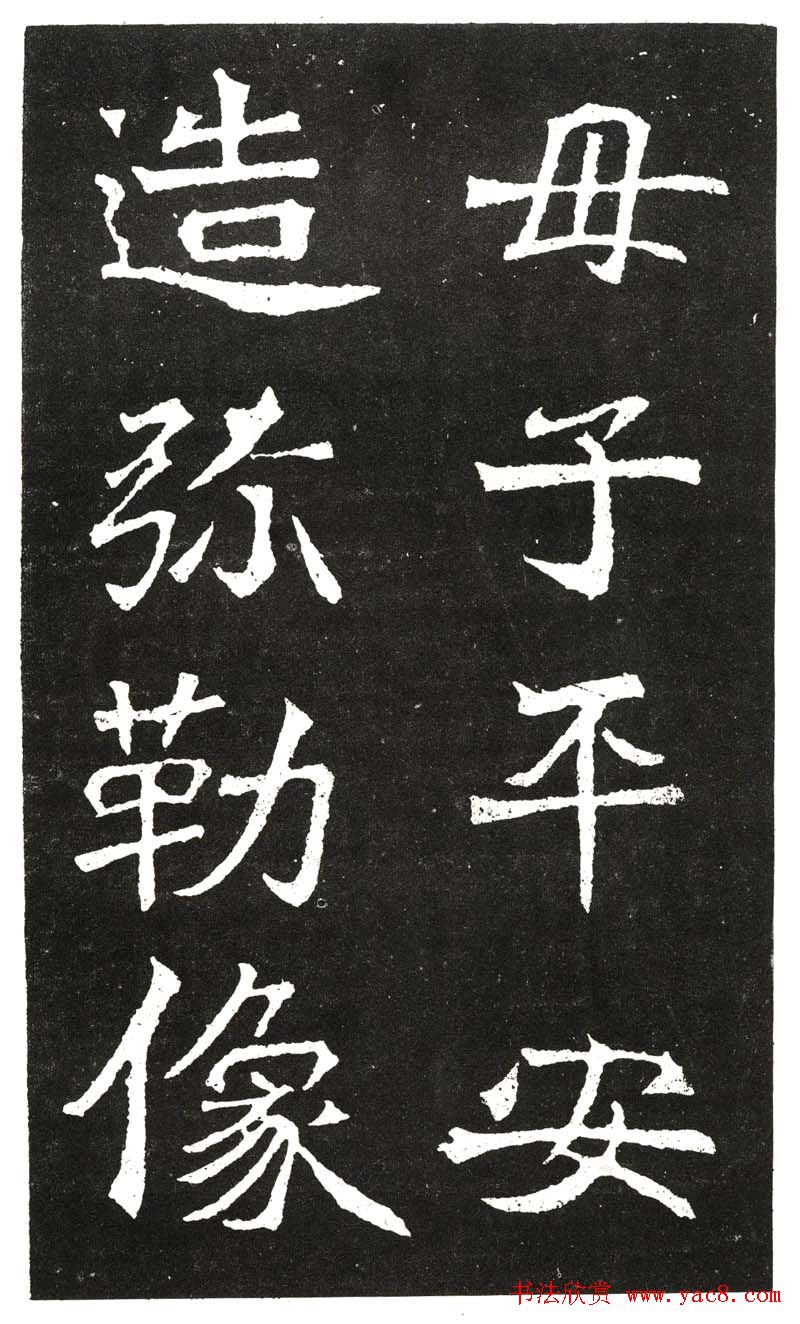 母子平安
造弥勒像
书法欣赏 www.yac8.com